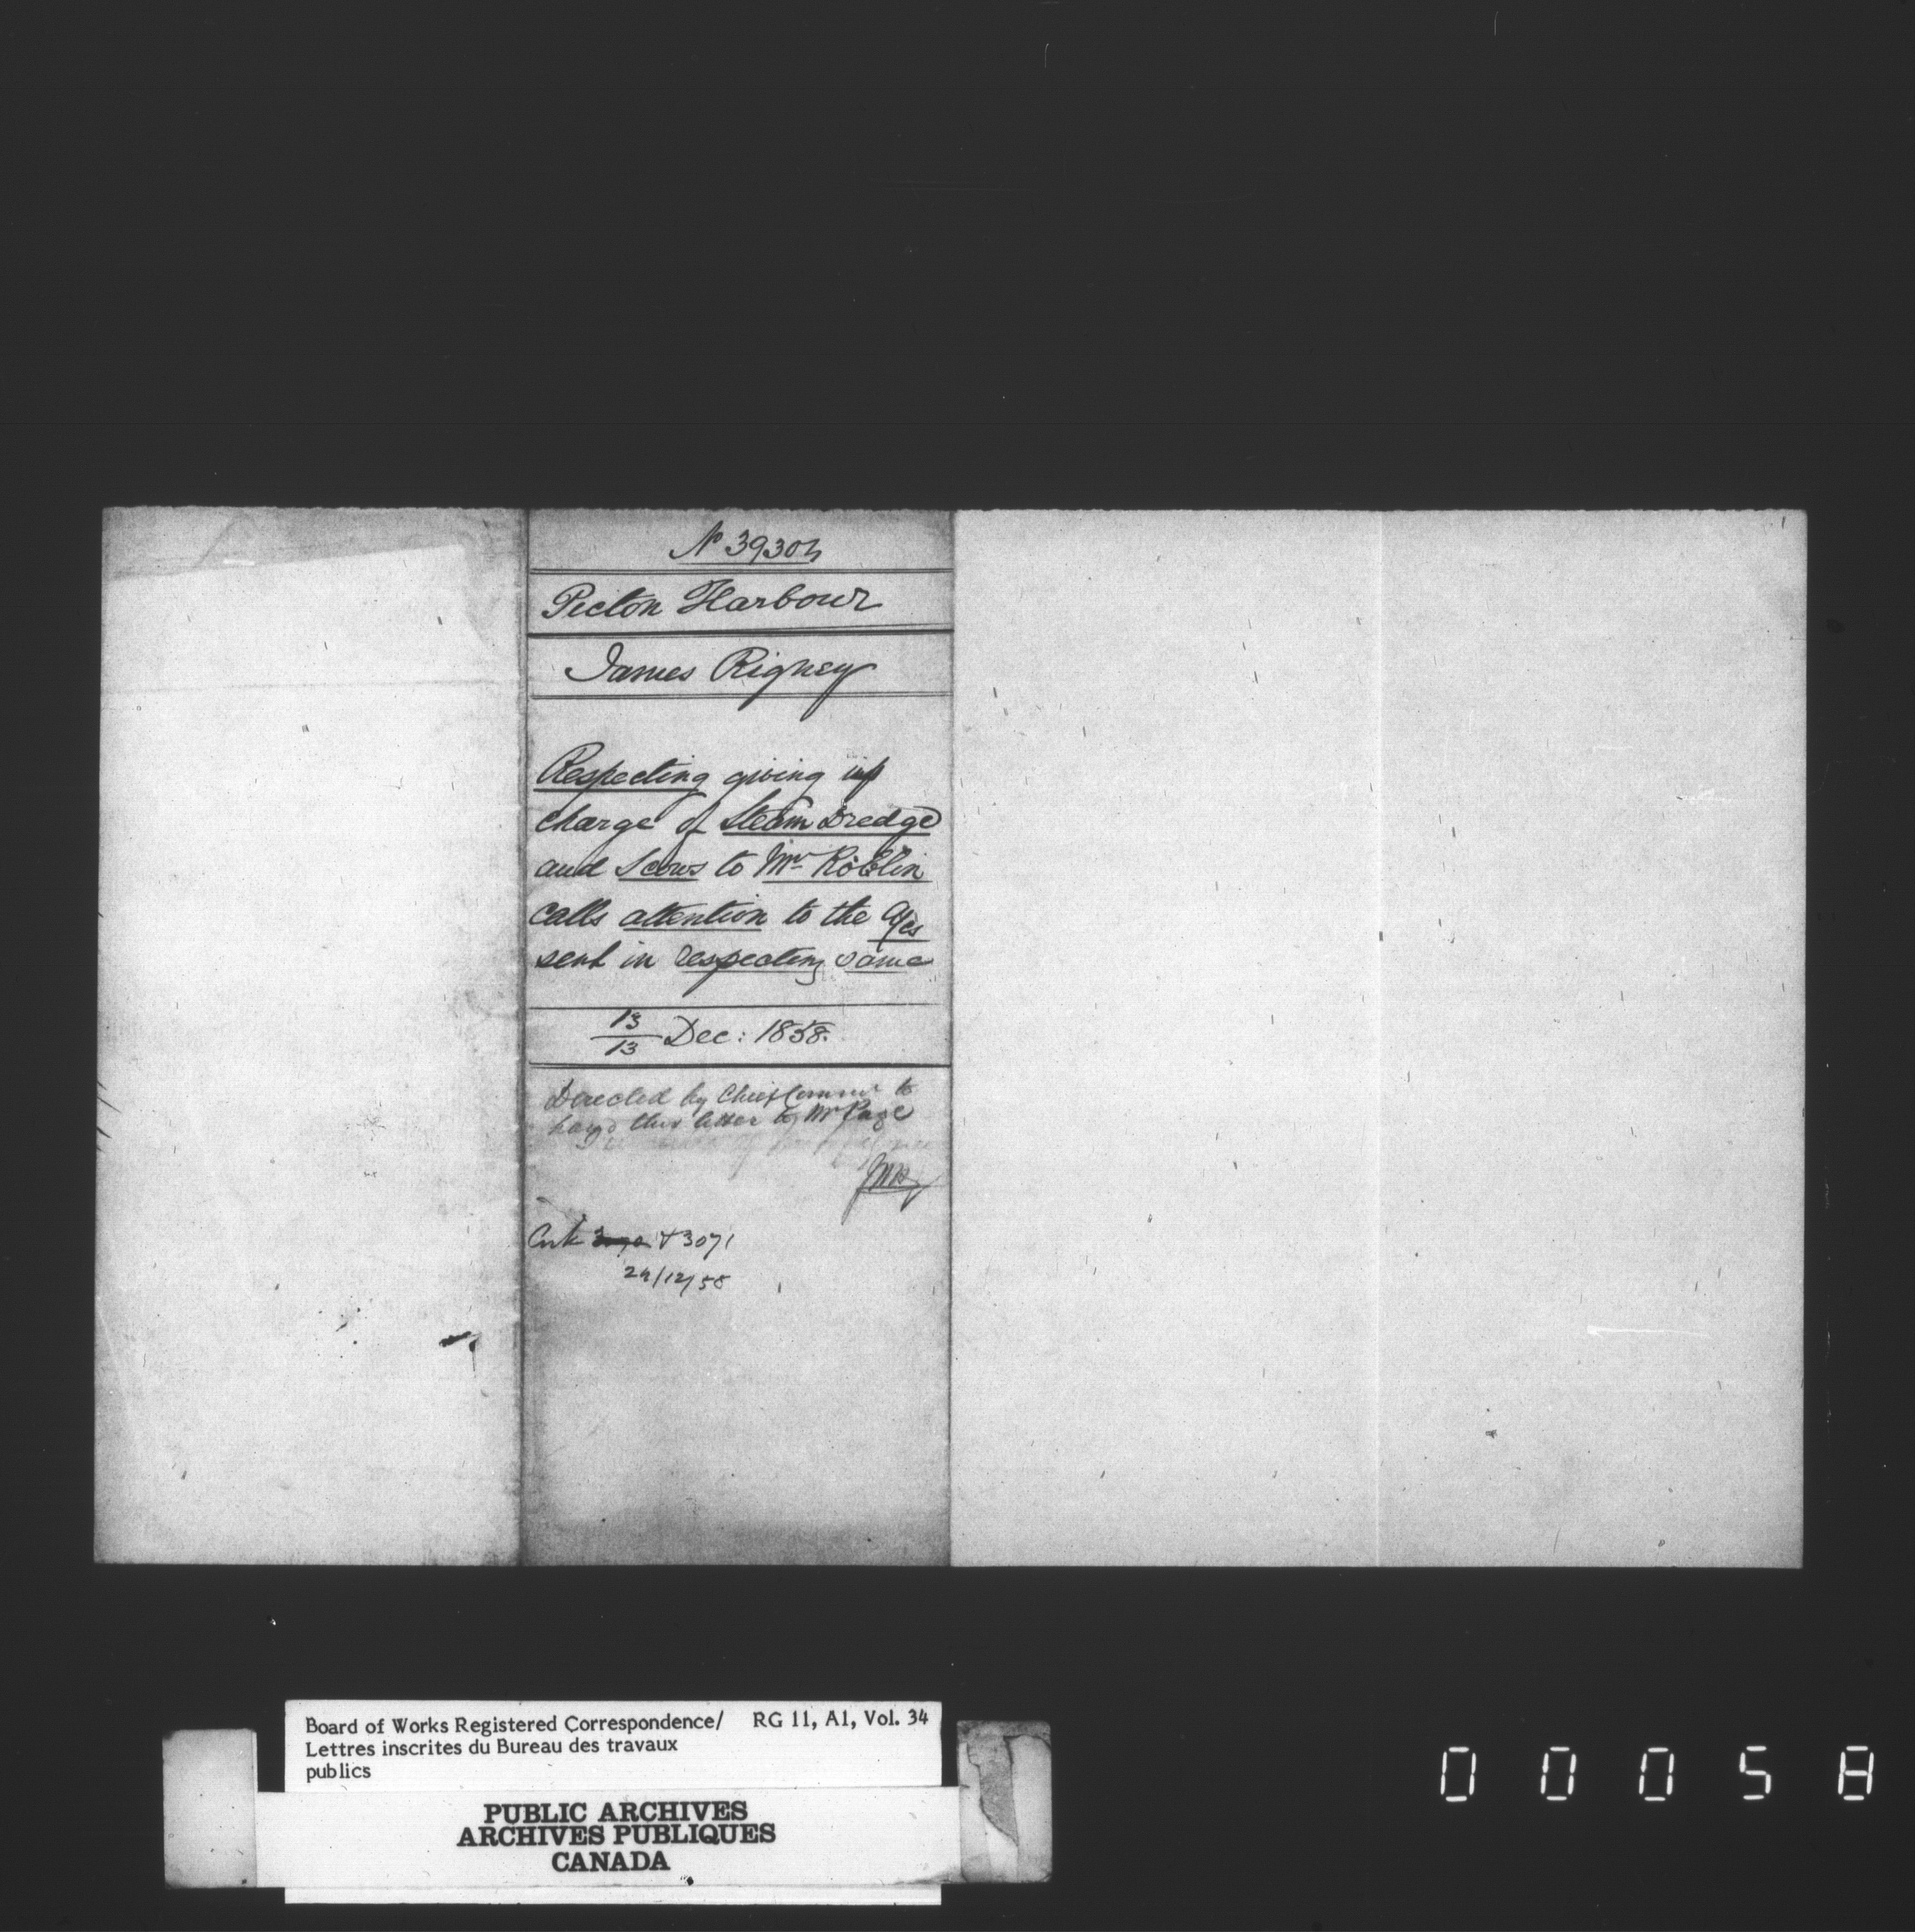 No 39304
Picton Harbour
James Rigney
Respecting giving up
charge of Steam Dredge
and Scows to Mr Roblin
calls attention to the a/cs
sent in respecting same
13/13 Dec: 1858.
Directed by Chief Commr to
hand this letter to Mr Page
+ 3071
24/12/58
Board of Works Registered Correspondence/ RG 11, A1, Vol. 34
Lettres inscrites du Bureau des travaux
publics
PUBLIC ARCHIVES
ARCHIVES PUBLIQUES
CANADA
00058